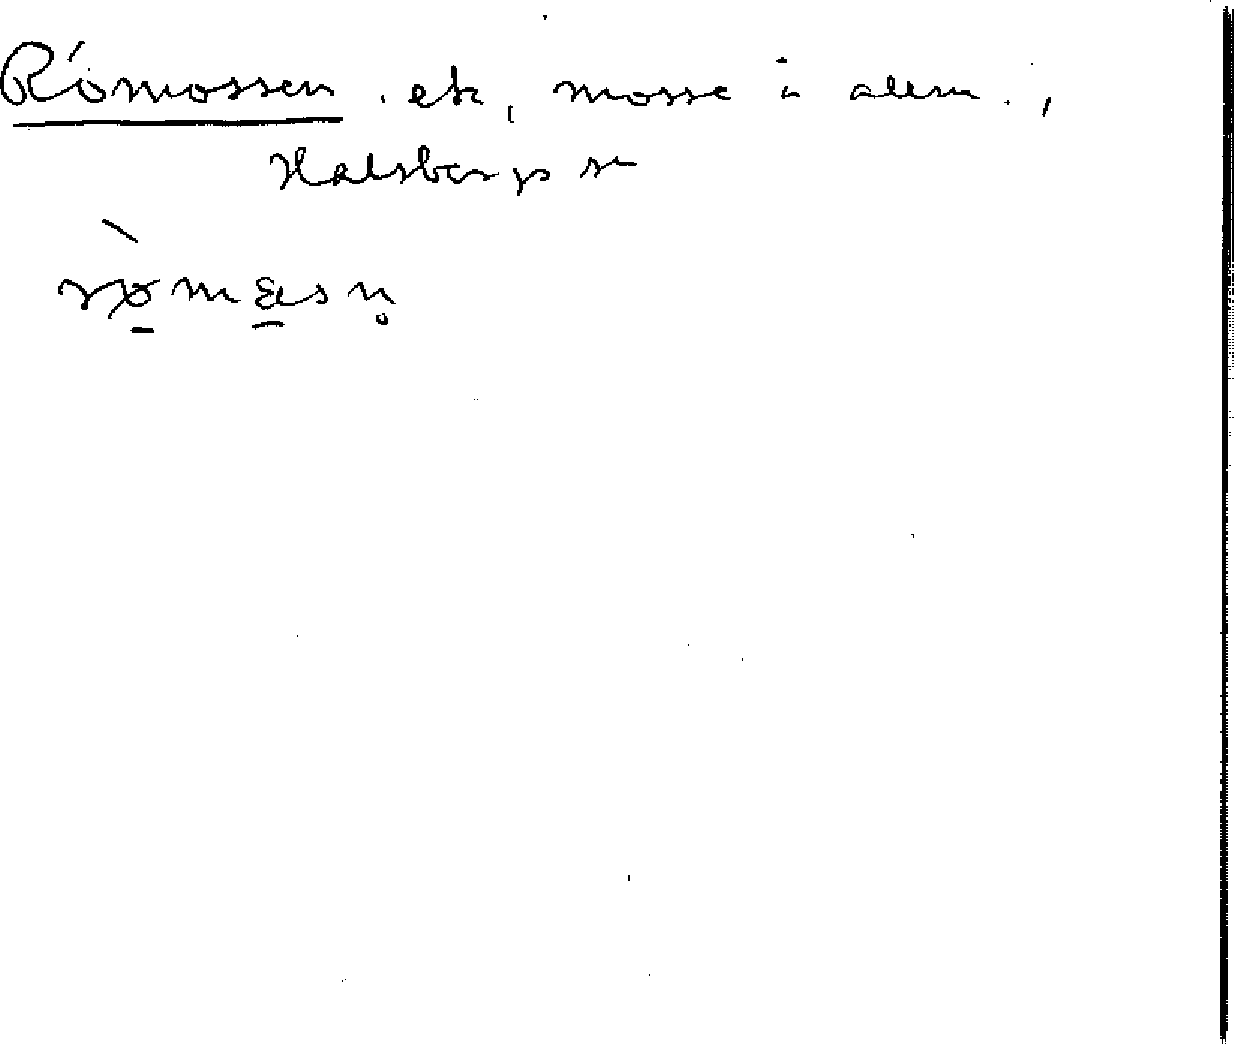 Römossen. ek, mosse i allm.,
Hallsbergs sn
rømåsn̥